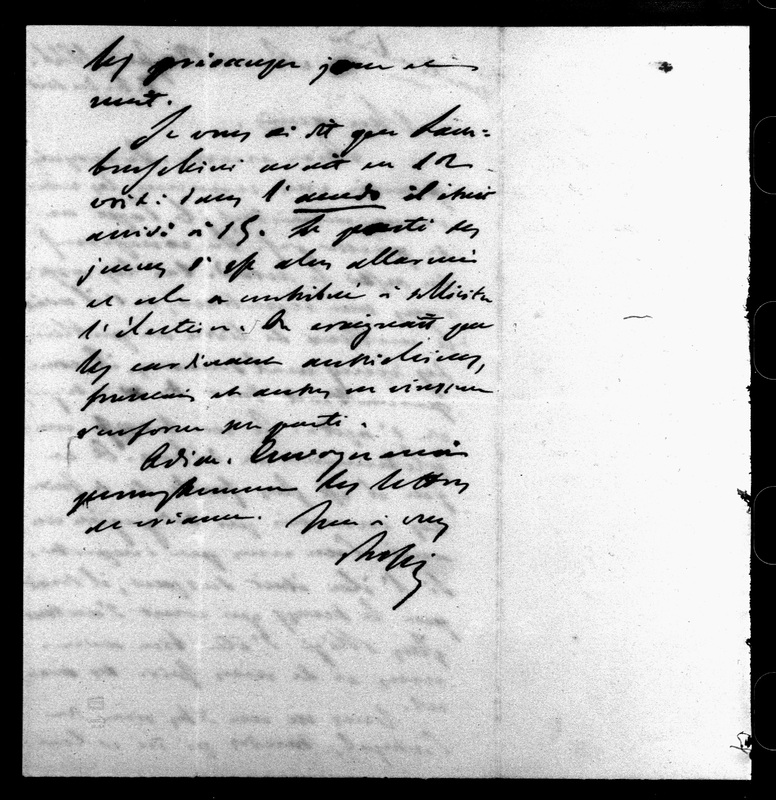 les provoquer jour et
nuit.
Je vous ai dit que Lam-
bruschini avait eu 12
voix: dans l'accesso il était
arrivé à 15. Le parti des
jeunes s'est alors allarmé
et cela a contribué à
l'élection. On craignait que
les cardinaux autrichiens,
français et autres ne vinssent
renforcer son parti.
Adieu. Envoyez-moi
les lettres
de créance. Tout à vous
Rossi